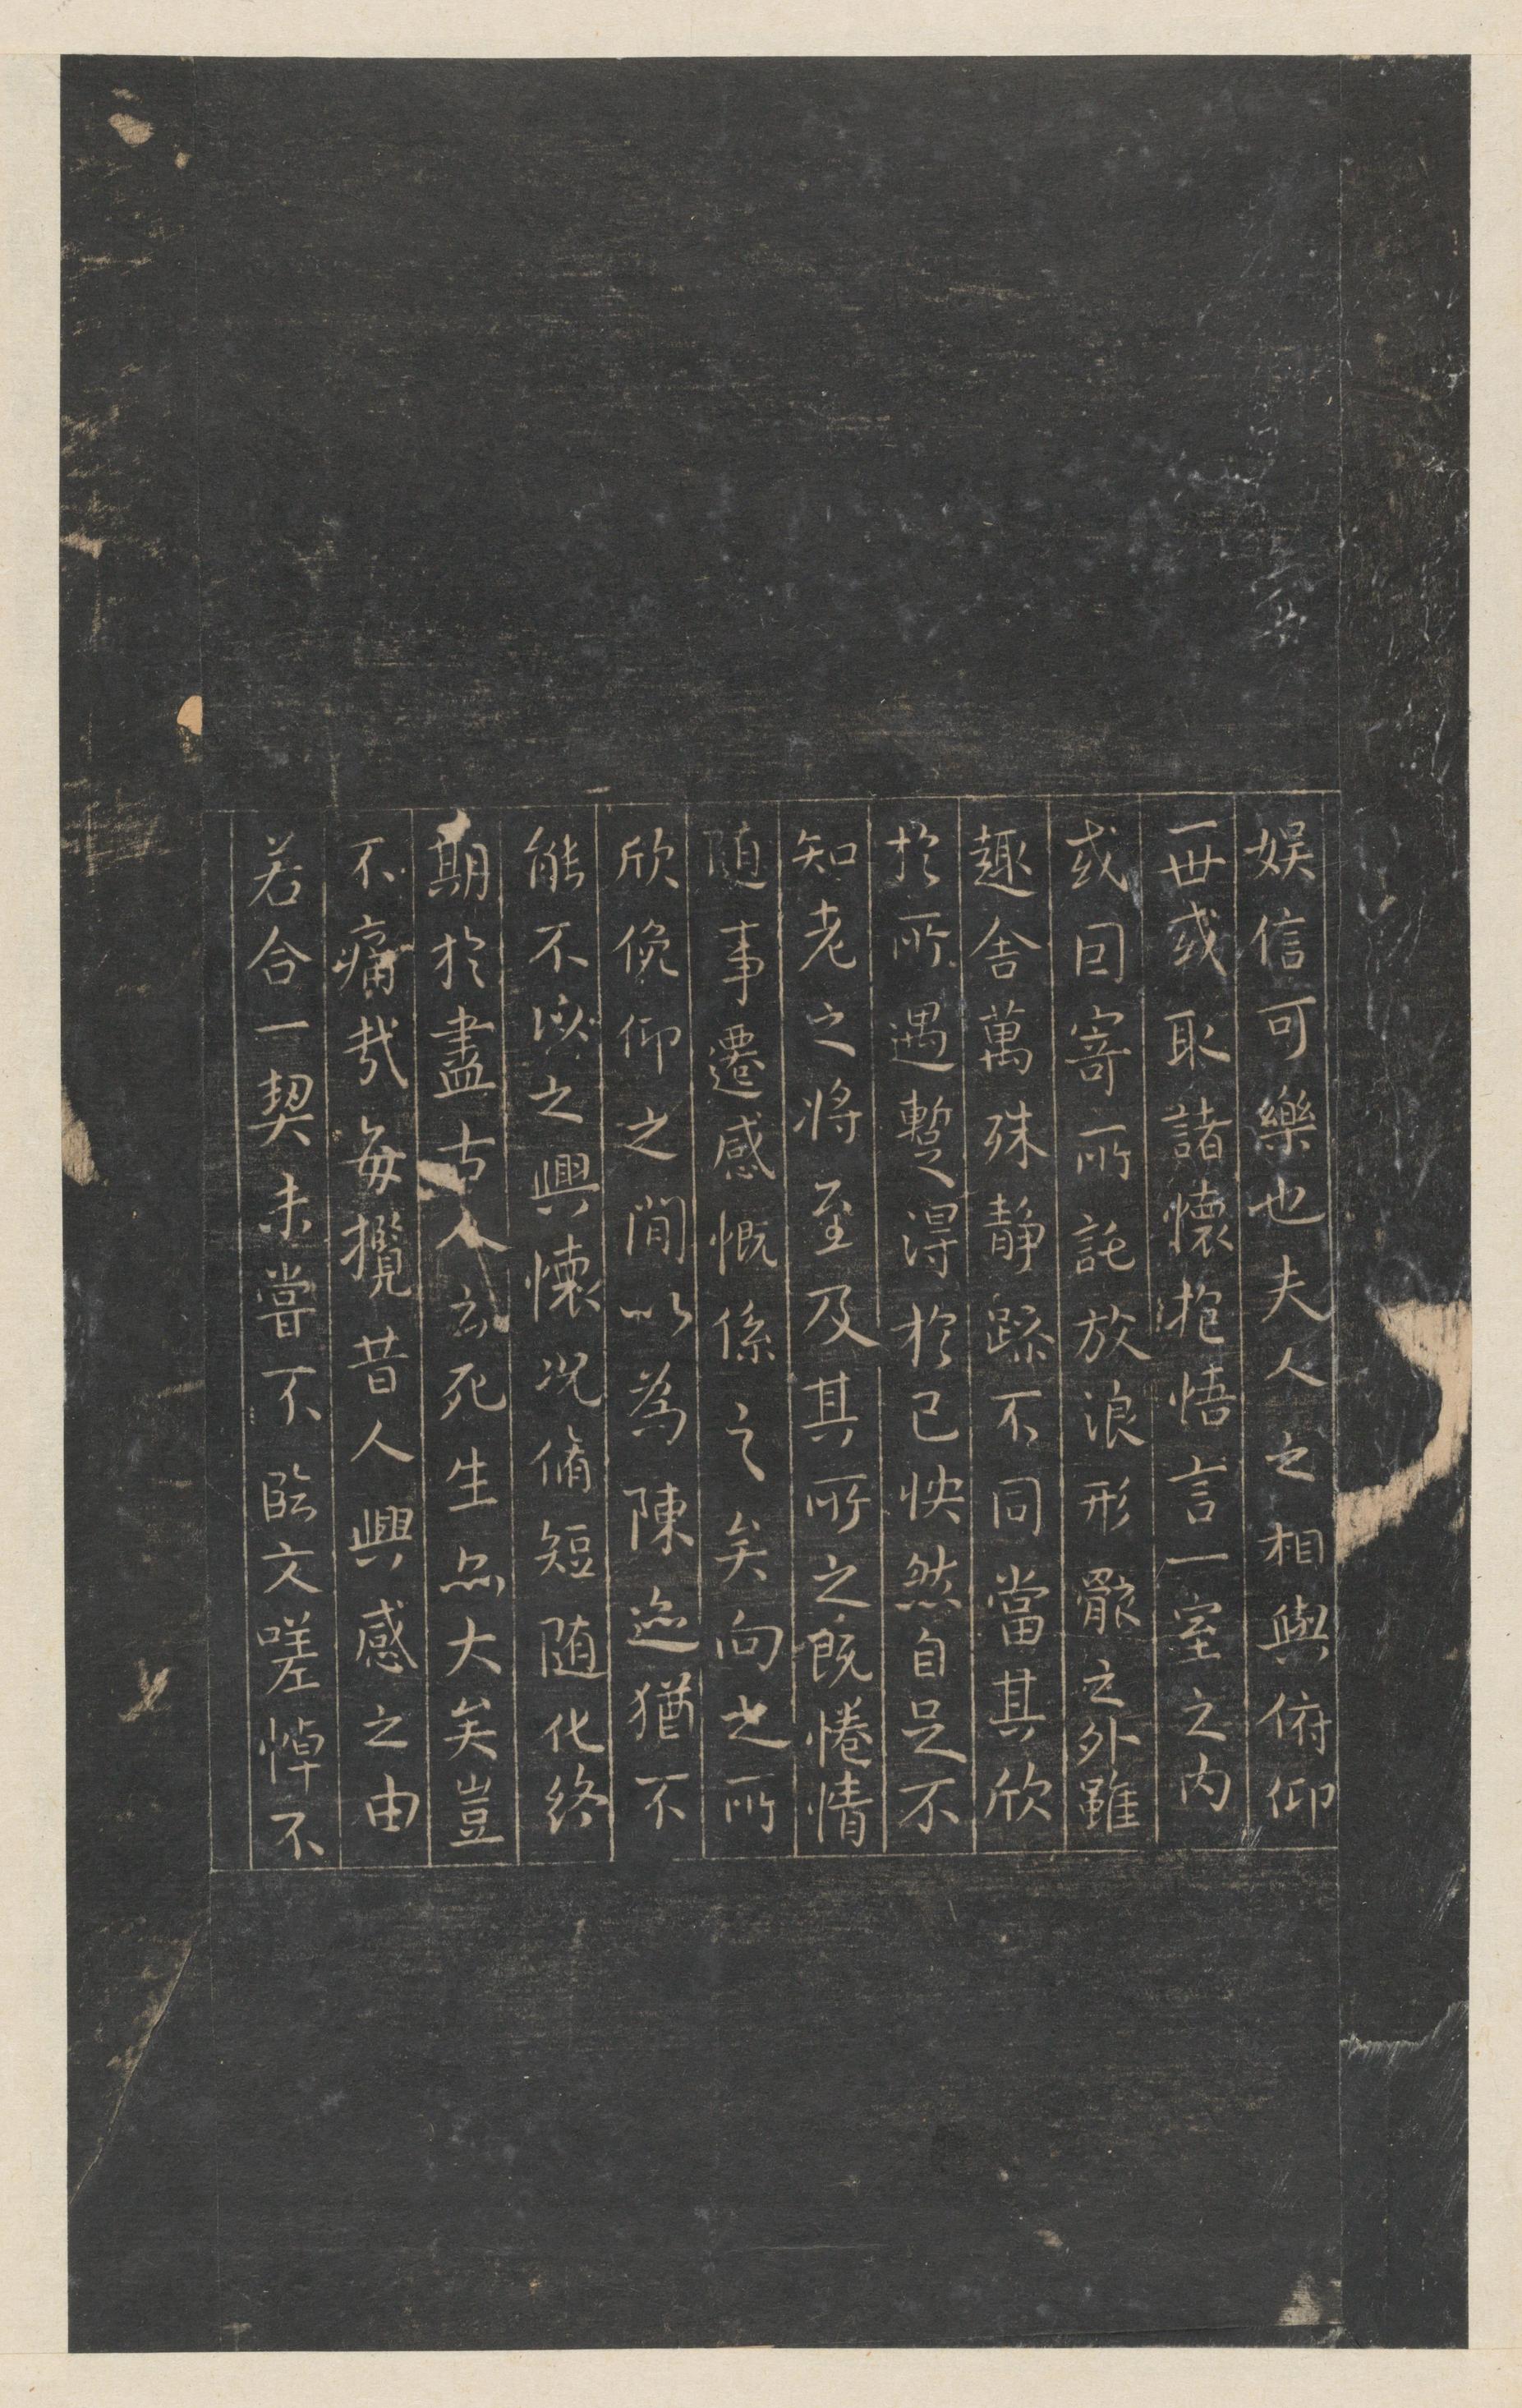 娯信可樂也夫人之相與俯仰
一世或取諸懷抱悟言一室之內
或因寄所託放浪形骸之外雖
趣舍萬殊静躁不同當其欣
於所遇暫得於己怏然自足不
知老之將至及其所之既惓情
随事遷感慨係之矣向之所
欣俛仰之閒以為陳迹猶不
能不以之興懷况脩短随化終
期於盡古人云死生亦大矣豈
不痛哉每攬昔人興感之由
若合一契未嘗不臨文嗟悼不